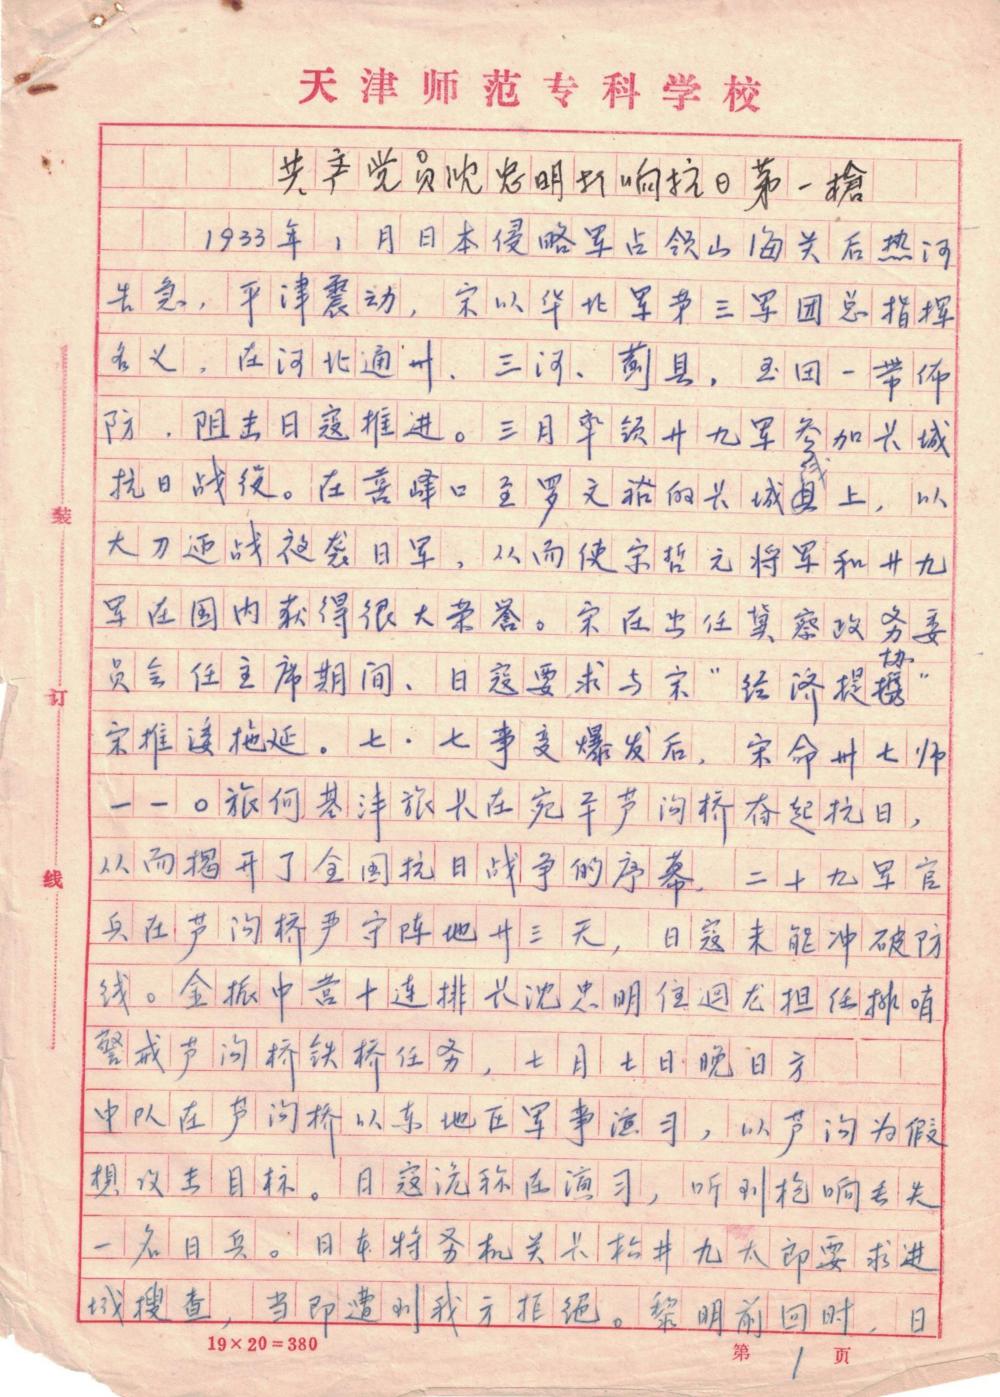 天津师范专科学校
共产党员沈忠明打响抗日第一槍
1933年1月日本侵略军占领山海关后热河
告急，平津震动，宋以华北军第三军团总指挥
名义，在河北通州、三河、蓟县，玉田一带佈
防，阻击日寇推进。三月率领廿九军参加长城
抗日战役。在喜峰口至罗文裕的长城线上，以
大刀迎战被袭日军，从而使宋哲元将军和廿九
军在国内获得很大荣誉。宋在出任冀察政务委
员会任主席期间、日寇要求与宋“经济提携”
协
宋推诿拖延。七·七事变爆发后，宋命卅七师
一一〇旅何基沣旅长在宛平芦沟桥奋起抗日，
从而揭开了全国抗日战争的序幕，二十九军官
兵在芦沟桥严守阵地廿三天，日寇未能冲破防
线。金振中营十连排长沈忠明住迴龙担任排哨
警戒芦沟桥铁桥任务，七月七日晚日方
中队在芦沟桥以东地区军事演习，以芦沟为假
想攻击目标。日寇诡称在演习，听到枪响丢失
一名日兵。日本特务机关长松井九太郎要求进
城搜查，当即遭到我方拒绝。黎明前回时，日
装
订
线
19×20=380
第1页